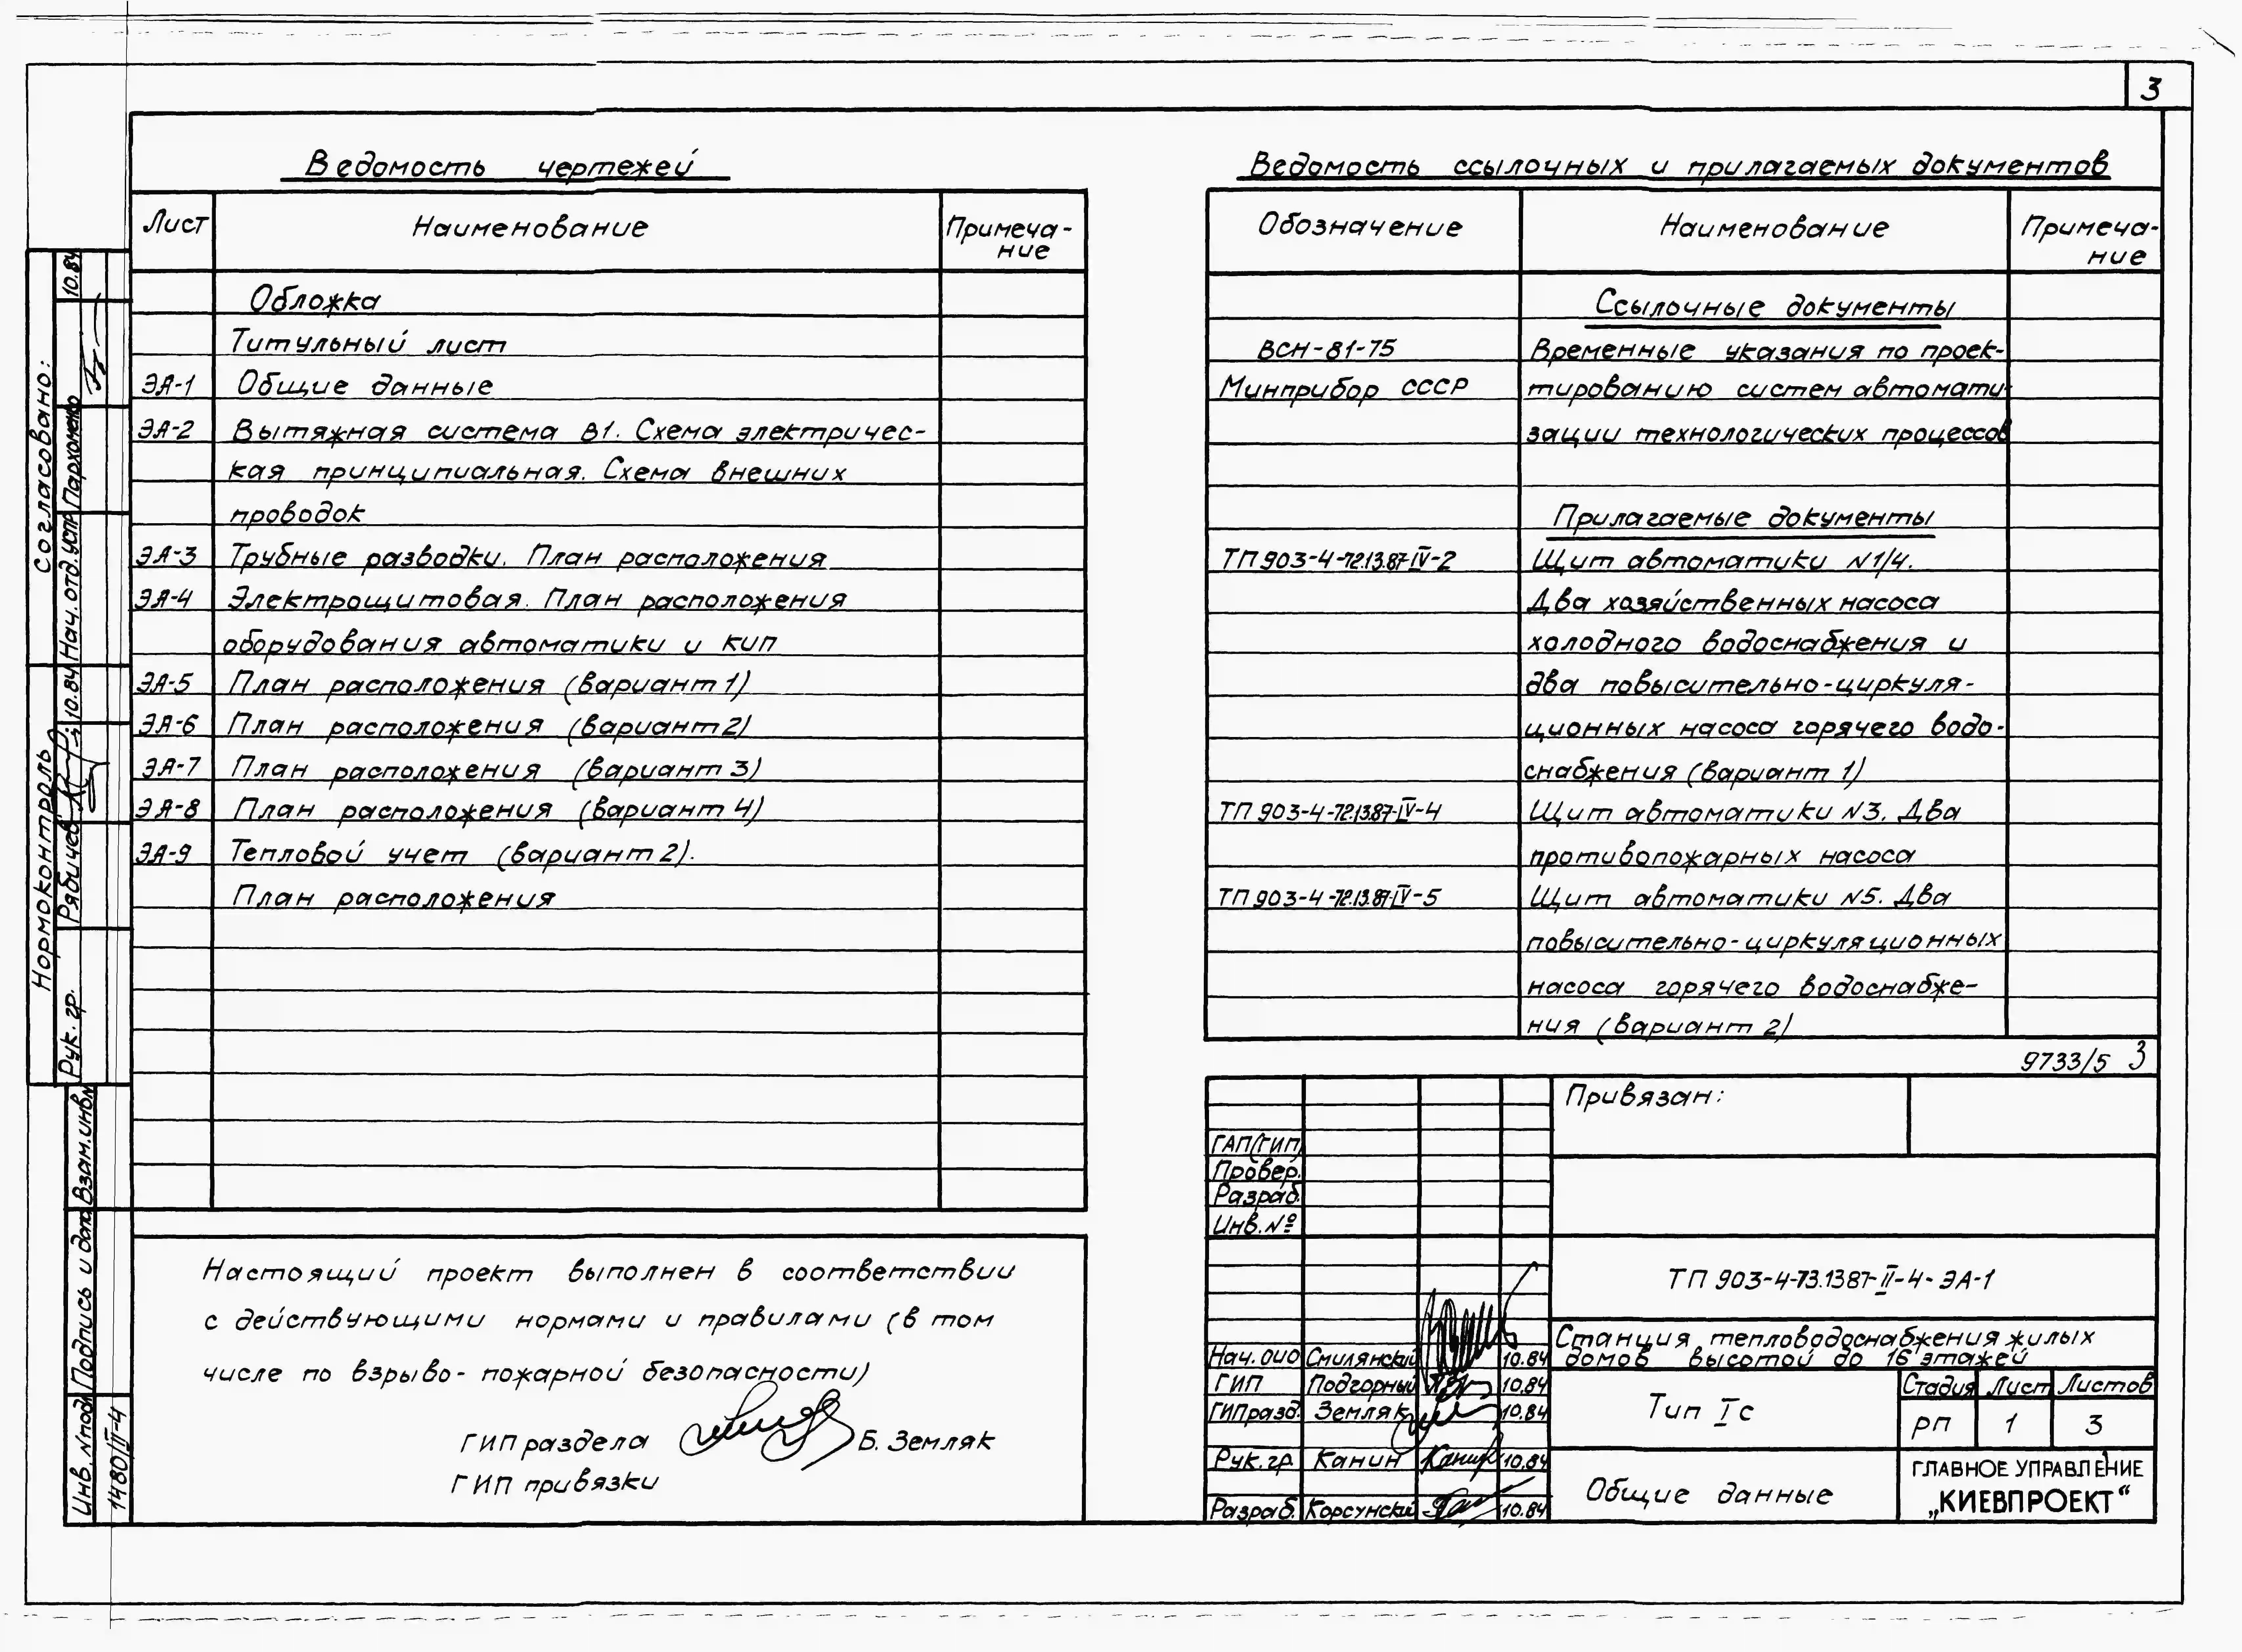 3
Ведомость чертежей
Лист Наименование Примеча-
ние
Обложка
Титульный лист
ЭА-1 Общие данные
ЭА-2 Вытяжная система В1. Схема электричес-
кая принципиальная. Схема внешних
проводок
ЭА-3 Трубные разводки. План расположения
ЭА-4 Электрощитовая. План расположения
оборудования автоматики и КИП
ЭА-5 План расположения (вариант 1)
ЭА-6 План расположения (вариант 2)
ЭА-7 План расположения (вариант 3)
ЭА-8 План расположения (вариант 4)
ЭА-9 Тепловой учет (вариант 2).
План расположения
Настоящий проект выполнен в соответствии
с действующими нормами и правилами (в том
числе по взрыво- пожарной безопасности)
ГИП раздела Б. Земляк
ГИП привязки
Ведомость ссылочных и прилагаемых документов
Обозначение Наименование Примеча-
ние
Ссылочные документы
ВСН-81-75 Временные указания по проек-
Минприбор СССР тированию систем автомати-
зации технологических процессов
Прилагаемые документы
ТП 903-4-72.13.87-IV-2 Щит автоматики N1/4.
Два хозяйственных насоса
холодного водоснабжения и
два повысительно-циркуля-
ционных насоса горячего водо-
снабжения (вариант 1)
ТП 903-4-72.13.87-IV-4 Щит автоматики N3. Два
противопожарных насоса
ТП 903-4-72.13.87-IV-5 Щит автоматики N5. Два
повысительно-циркуляционных
насоса горячего водоснабже-
ния (вариант 2)
9733/5 3
Привязан:
ГАП(ГИП)
Провер.
Разраб.
Инв.№
ТП 903-4-73.1387-II-4-ЭА-1
Станция тепловодоснабжения жилых
домов высотой до 16 этажей
Нач. ОИО Смилянский 10.84
ГИП Подгорный 10.84
ГИПразд. Земляк 10.84
Рук.гр. Канин Канин 10.84
Разраб. Корсунский 10.84
Тип Iс
Стадия Лист Листов
РП 1 3
Общие данные
ГЛАВНОЕ УПРАВЛЕНИЕ
„КИЕВПРОЕКТ“
Согласовано:
Нач.отд.УСПР Пархоменко 10.84
Нормоконтроль
Рук. гр. Рябичев 10.84
Взам.инв.N
Подпись и дата
Инв. Nподл
1480/II-4